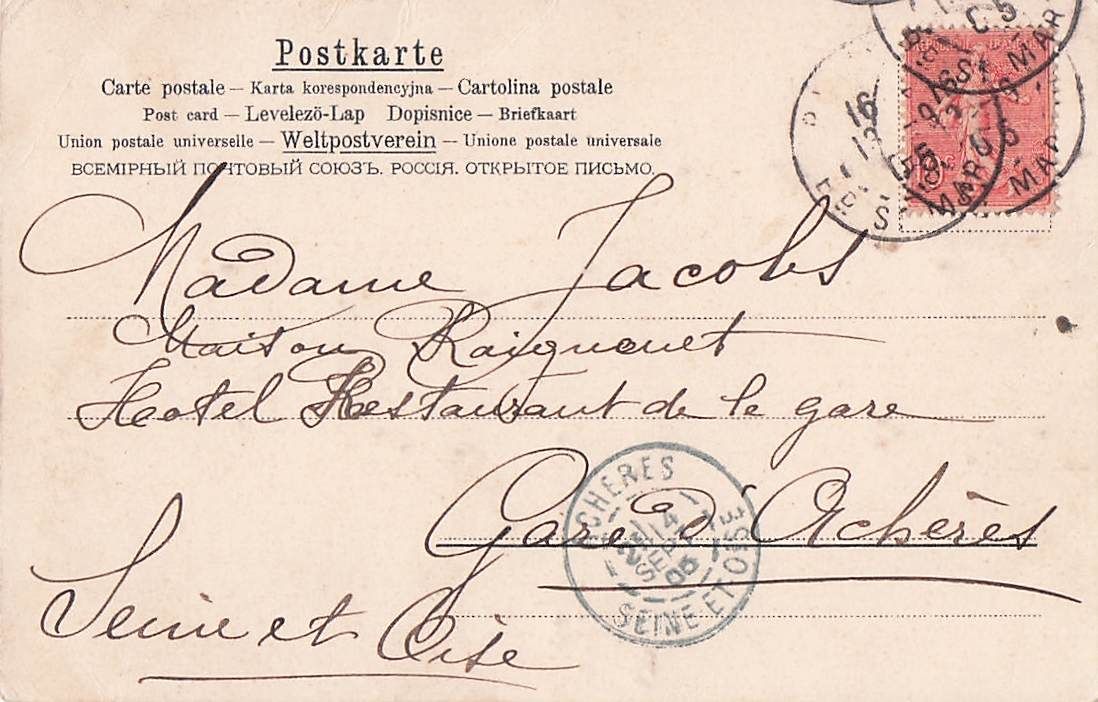 Postkarte
Carte postale — Karta korespondencyjna — Cartolina postale
Post card — Levelezö-Lap Dopisnice — Briefkaart
Union postale universelle — Weltpostverein — Unione postale universale
ВСЕМІРНЫЙ ПОЧТОВЫЙ СОЮЗЪ. РОССІЯ. ОТКРЫТОЕ ПИСЬМО.
Madame Jacobs
Maison Raigneouet
Hotel Restaurant de le gare
Gare d'Achères
Seine et Oise
ACHERES
14
SEPT
05
SEINE ET OISE
16
MARS